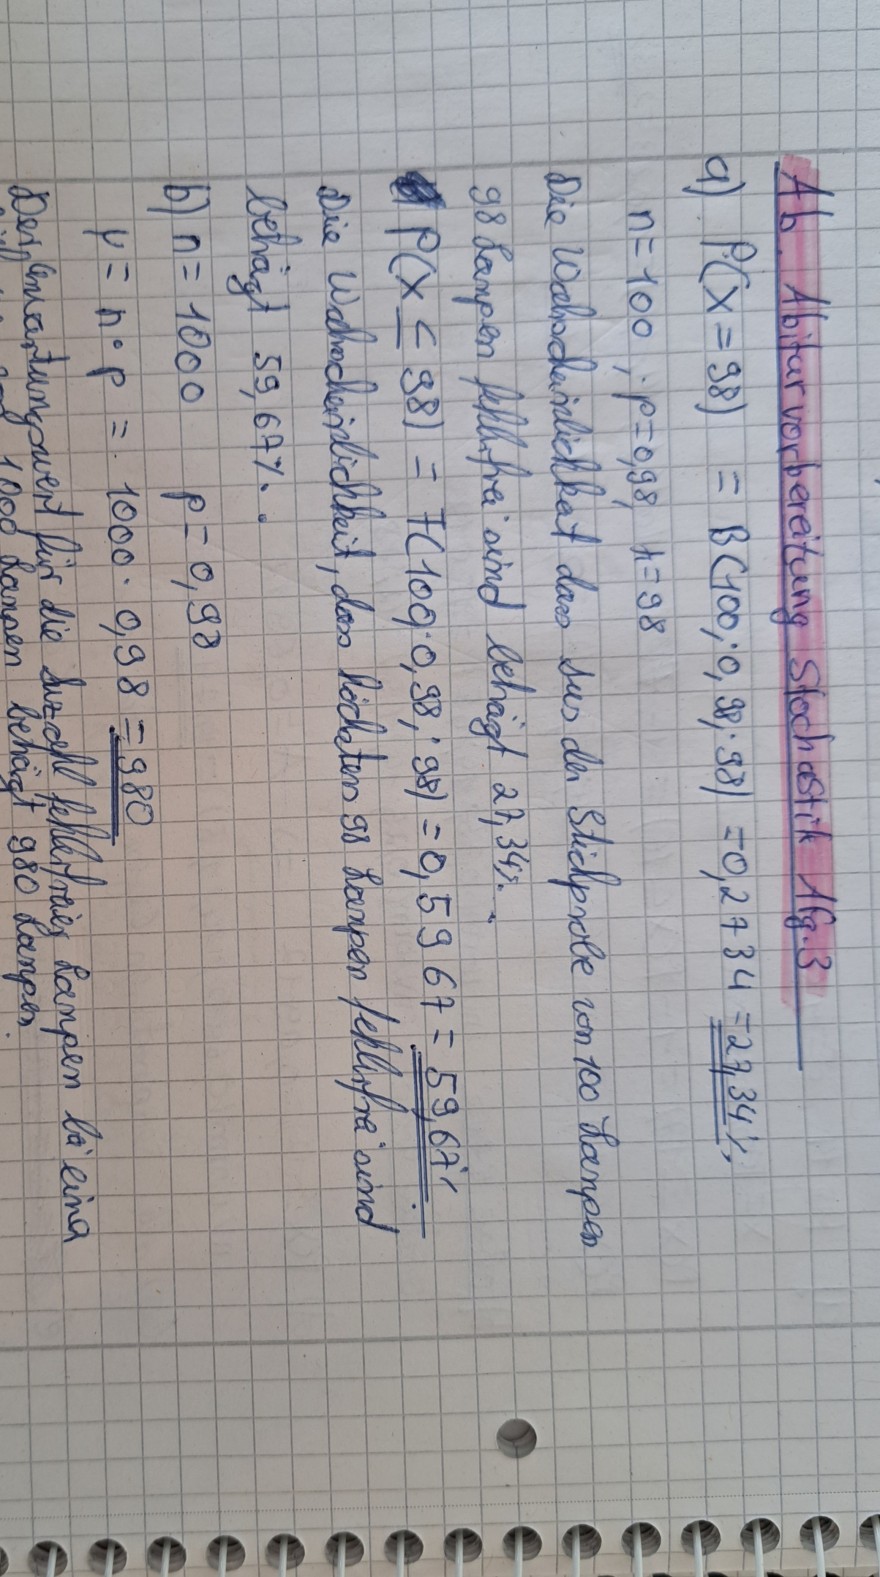 Ab. Abiturvorbereitung Stochastik Afg.3
a) P(X = 98) = B(100; 0,98; 98) = 0,2734 = 27,34%
n = 100 ; p = 0,98, k = 98
Die Wahrscheinlichkeit dass aus der Stichprobe von 100 Lampen
98 Lampen fehlerfrei sind beträgt 27,34%.
P(X ≤ 98) = F(100; 0,98; 98) = 0,5967 = 59,67%
Die Wahrscheinlichkeit, dass höchstens 98 Lampen fehlerfrei sind
beträgt 59,67%.
b) n = 1000 p = 0,98
μ = n · p = 1000 · 0,98 = 980
Der Erwartungswert für die Anzahl fehlerfreier Lampen bei einer
von 1000 Lampen beträgt 980 Lampen.